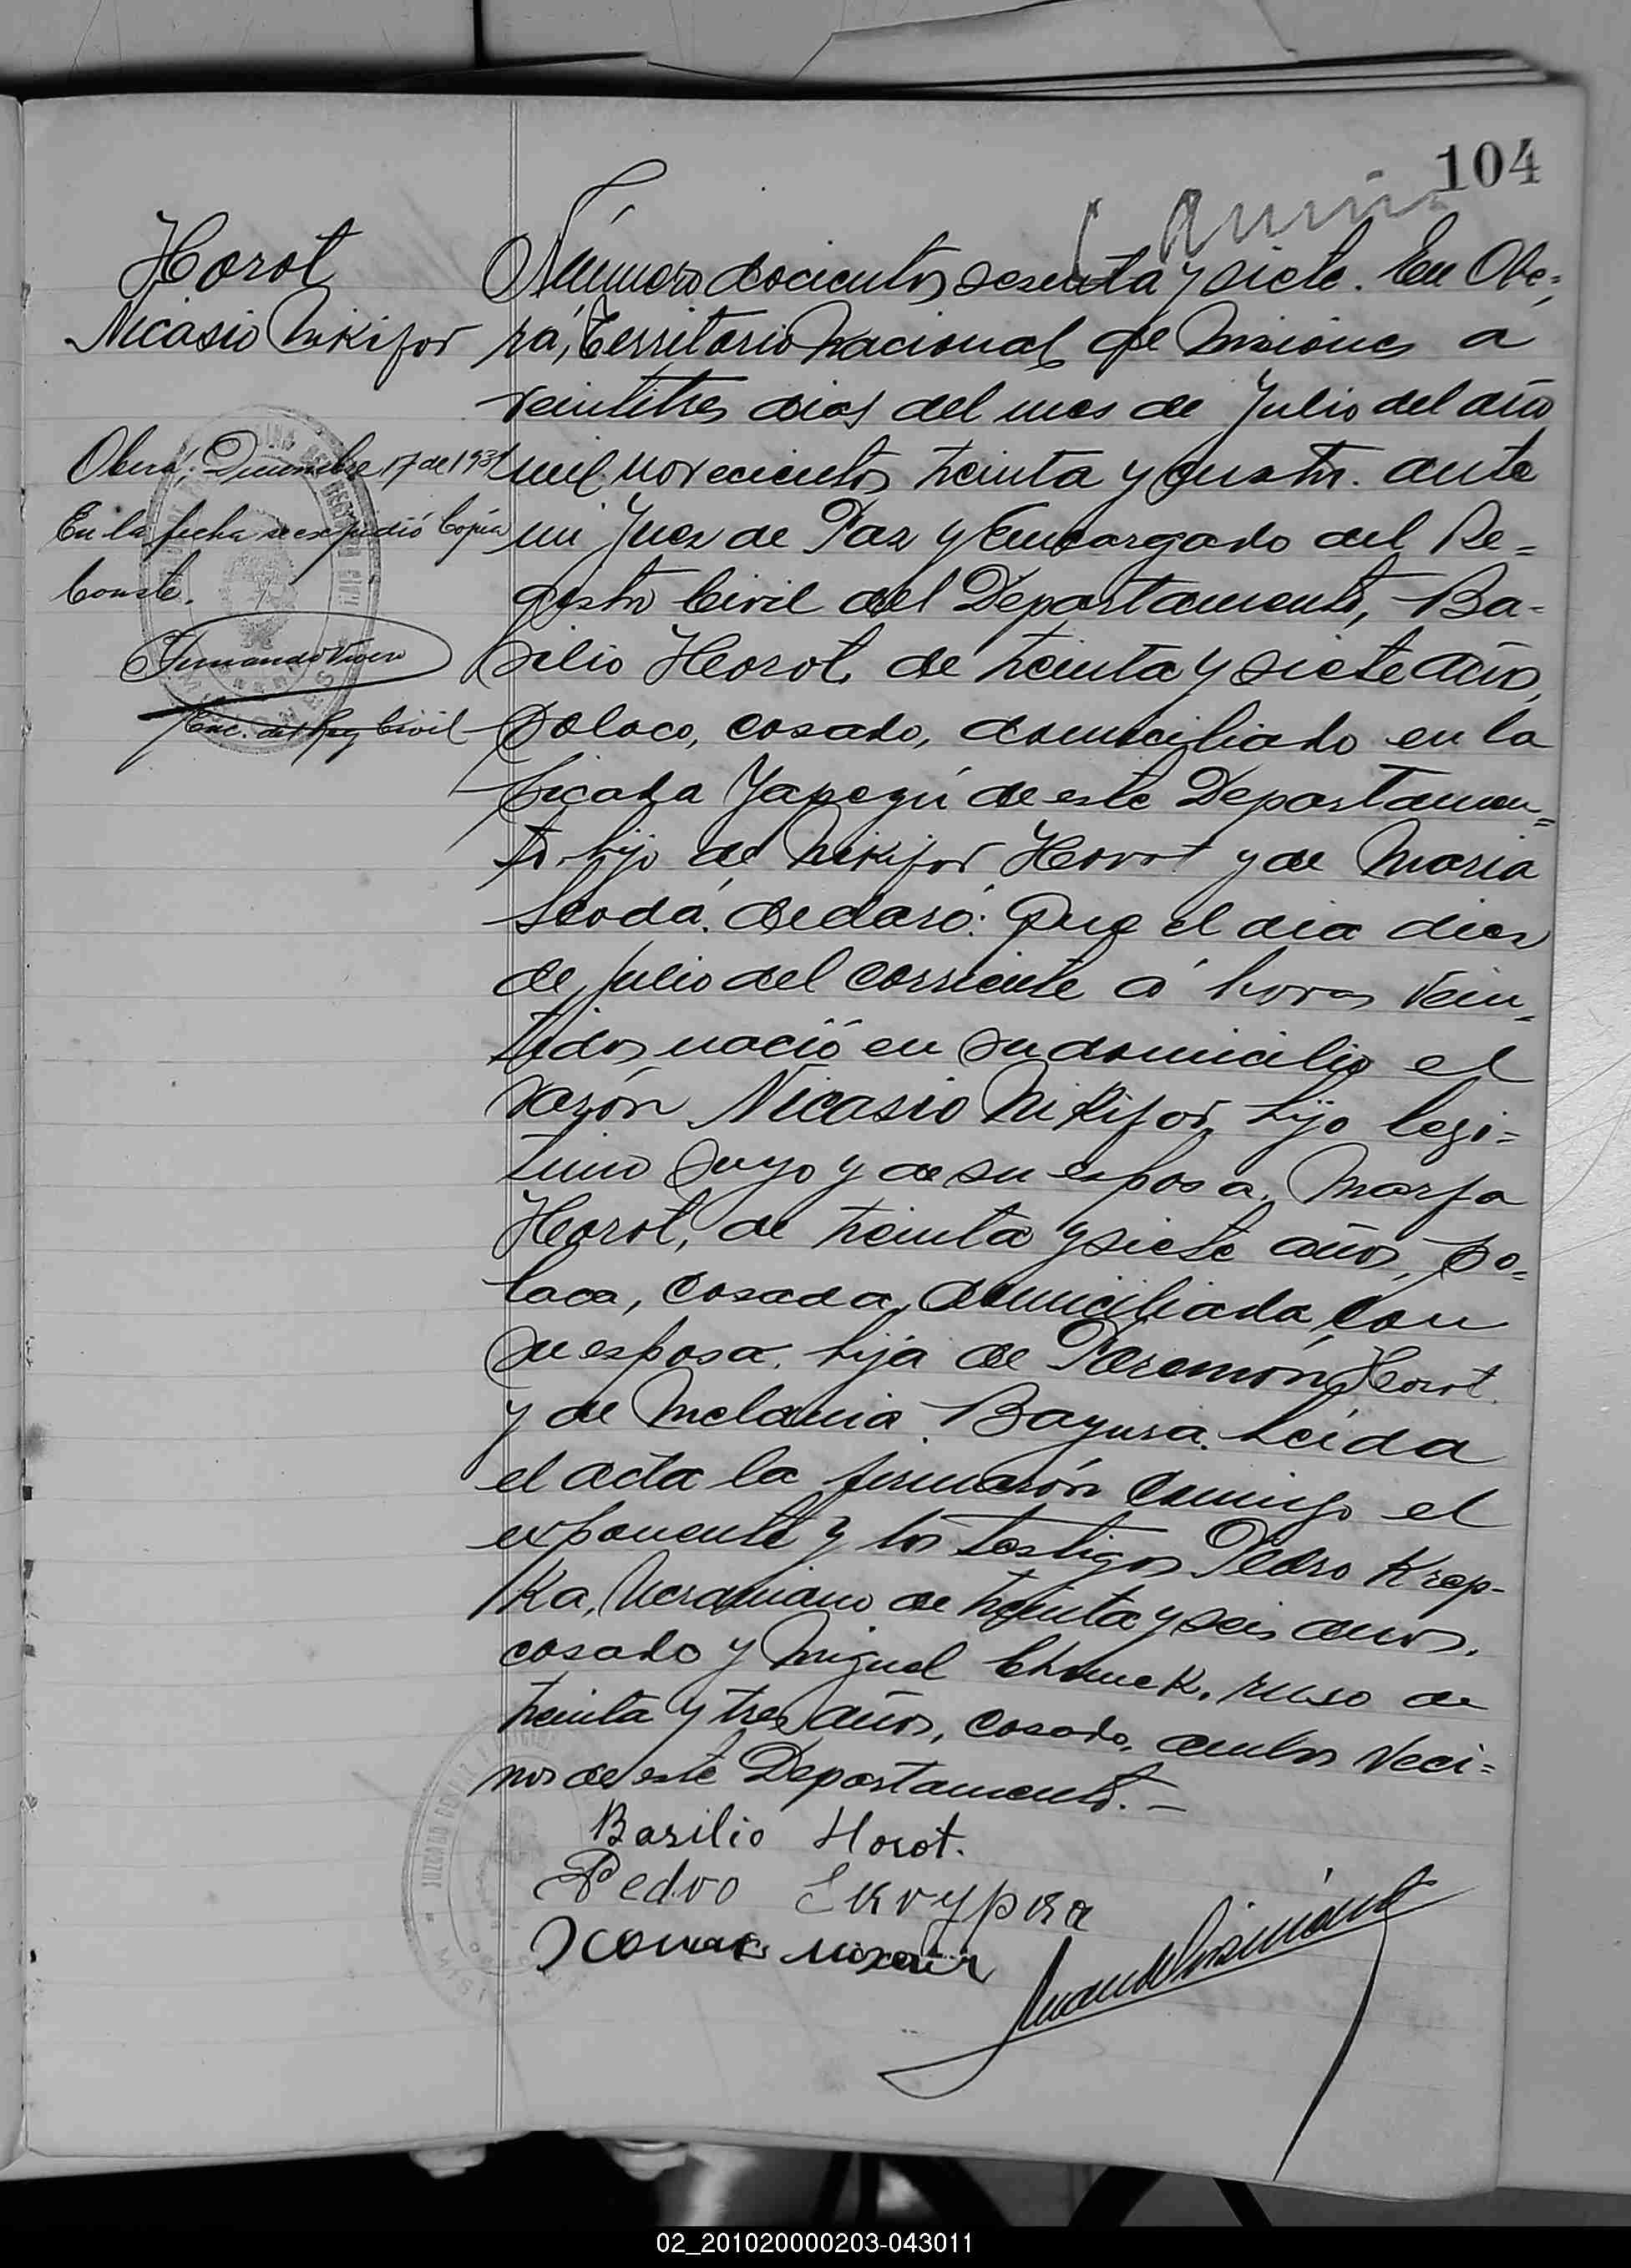 104
Horot
Nicasio Nikifor
Oberá, Diciembre 17 de 193
En la fecha se expidió Copia
Conste.
Fernando
Enc. del Reg Civil
Número docientos sesenta y siete. En Obe=
rá, Territorio Nacional de Misiones a
veintitres dias del mes de Julio del año
mil novecientos treinta y cuatro. ante
mi Juez de Paz y Encargado del Re=
gistro Civil del Departamento, Ba-
silio Horot, de treinta y siete años,
polaco, casado, domiciliado en la
picada Yapeyú de este Departamen=
to, hijo de Nikifor Horot y de Maria
declaró: Que el dia diez
de Julio del corriente a horas vein=
tidos nació en su domicilio el
varón Nicasio Nikifor, hijo legi=
timo suyo y de su esposa, Marfa
Horot, de treinta y siete años, po=
laca, casada, domiciliada con
su esposa. hija de Paremón Horot
y de Melania Bayura. Leída
el acta la firmarón conmigo el
exponente y los testigos Pedro Krep-
ka, Ucraniano de treinta y seis años,
casado y Miguel Chomek, ruso de
treinta y tres años, casado, ambos veci=
nos de este Departamento. -
Basilio Horot.
Pedro
JUZGADO DE PAZ
02_201020000203-043011